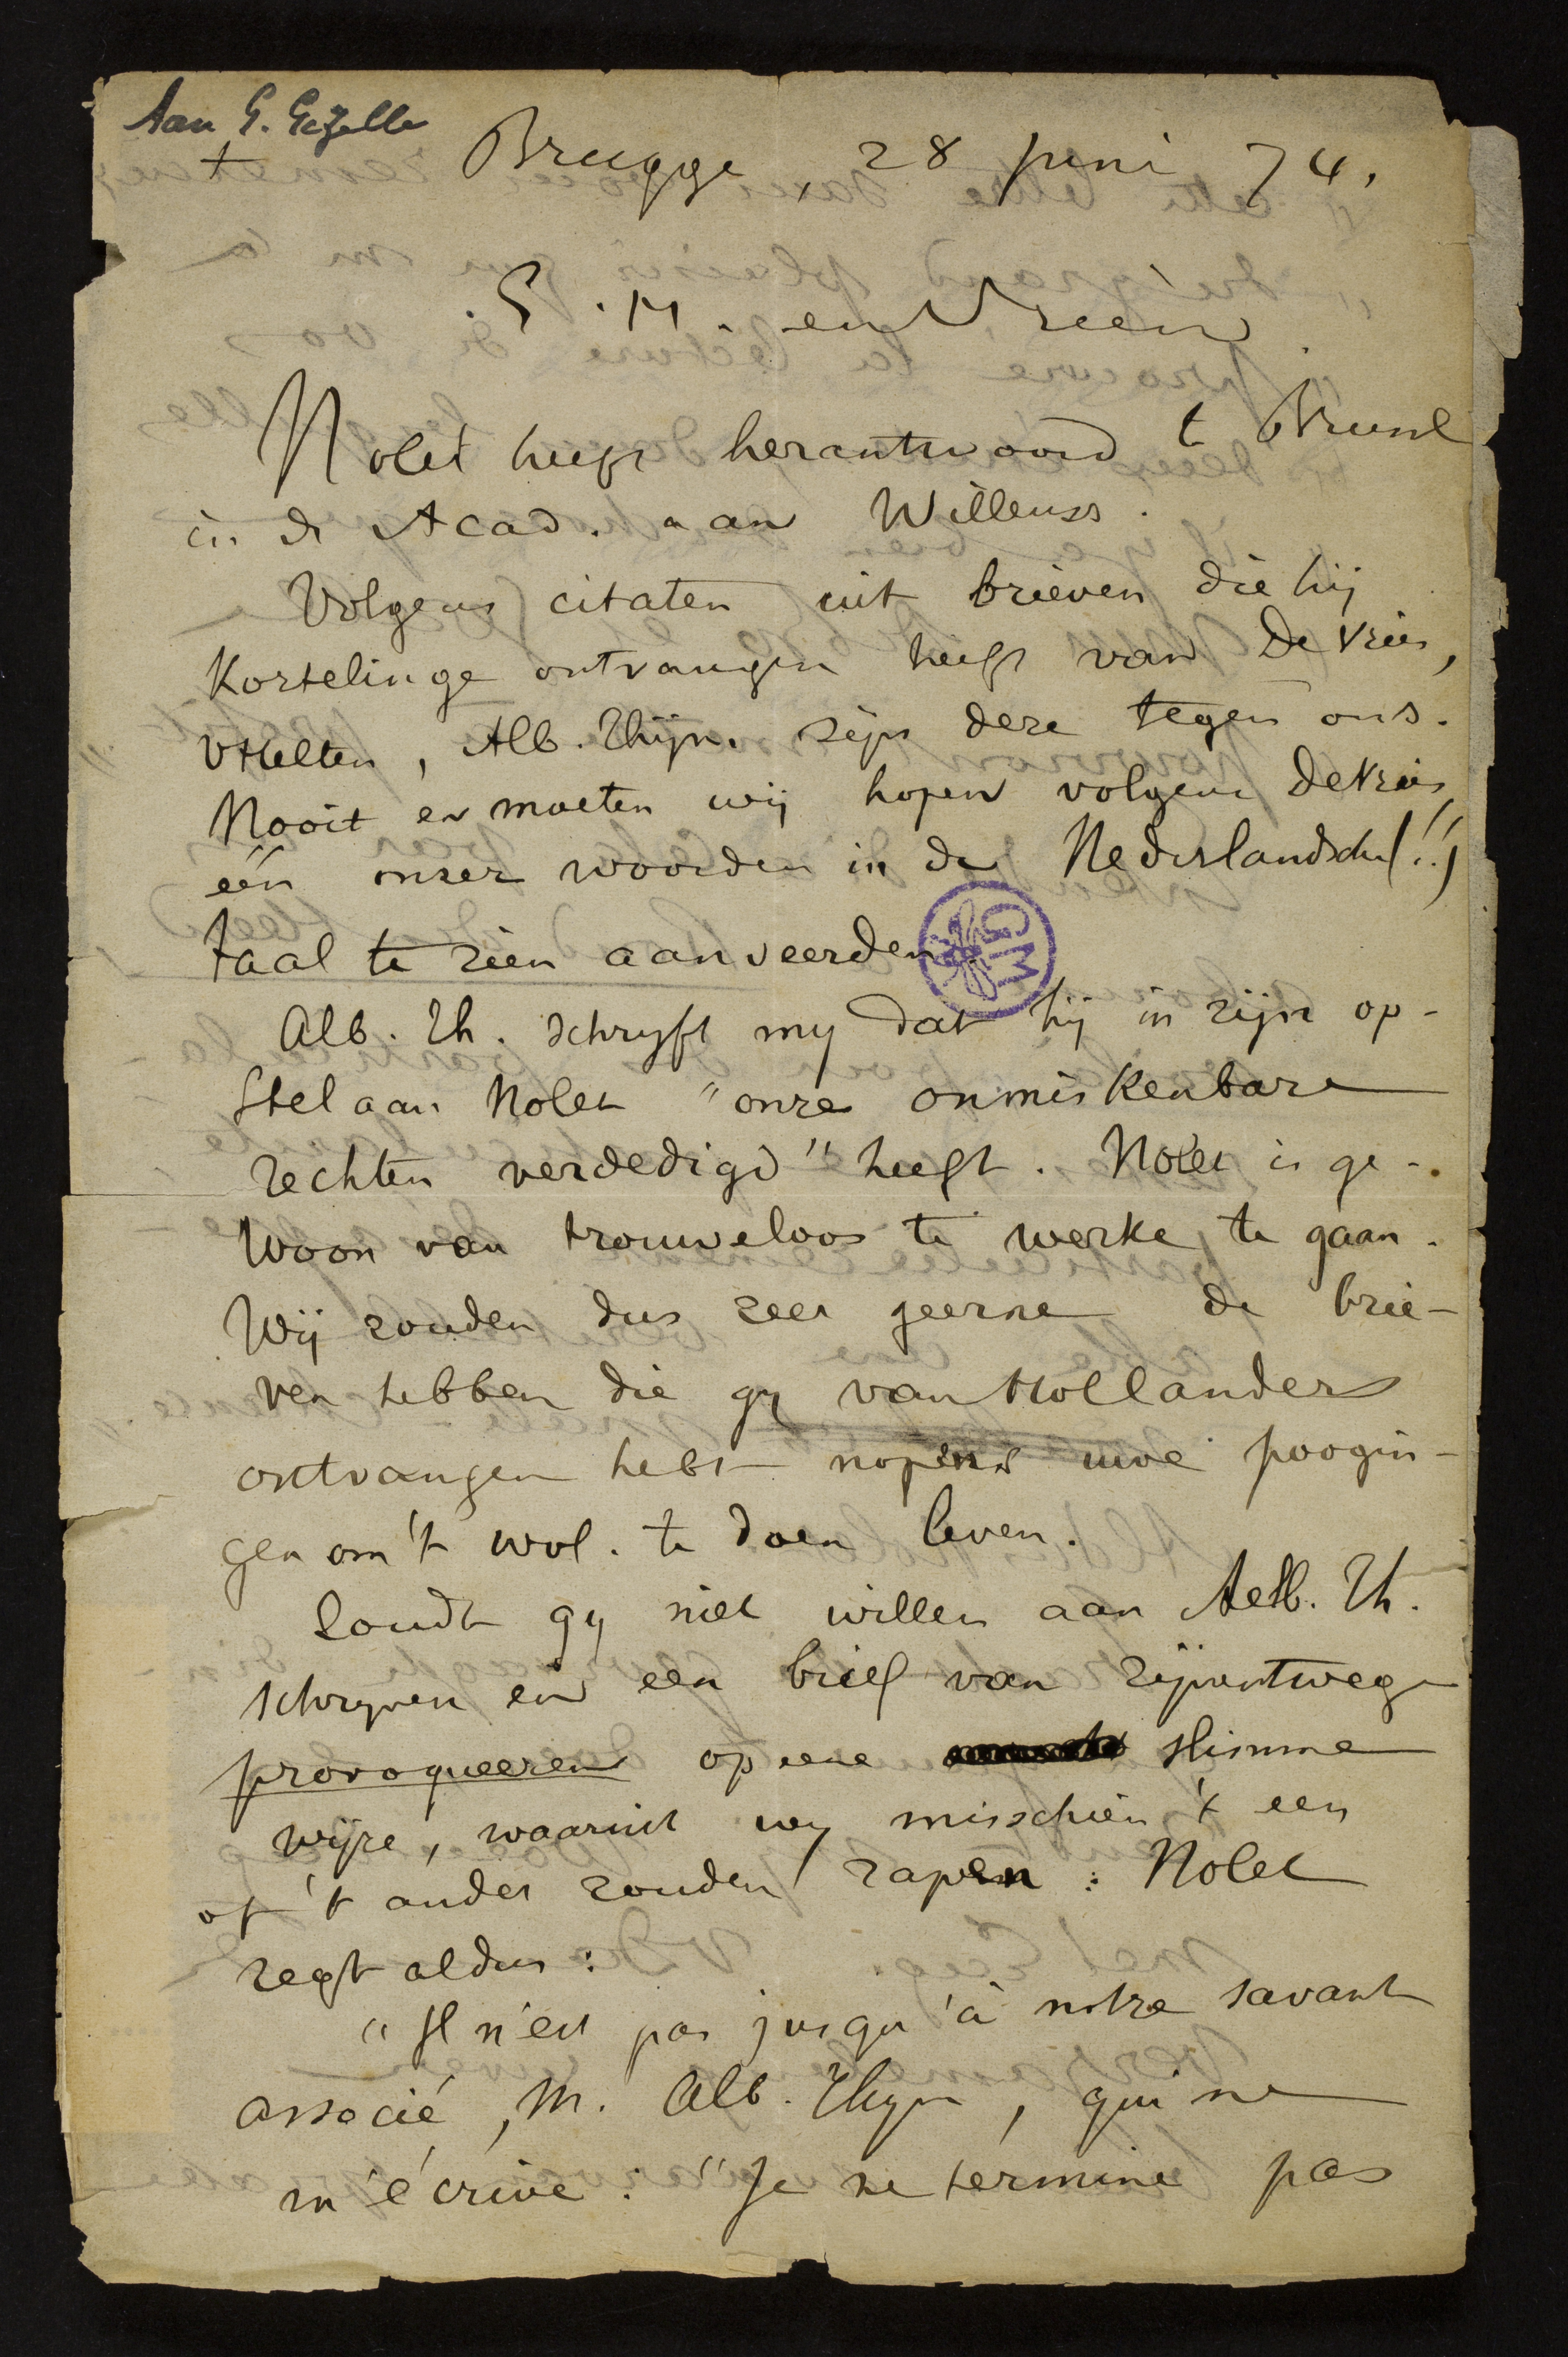 Aan G. Gezelle
+ Brugge, 28 juni 74.
E. H. en Vriend
Nolet heeft herantwoord te Brussel
in de Acad. aan Willems.
Volgens citaten uit brieven die hij
Kortelinge ontvangen heeft van De Vries,
VHelten, Alb. Thijm. zijn deze tegen ons.
Nooit en moeten wij hopen volgens De Vries,
één onzer woorden in de Nederlandsche (!!)
taal te zien aanveerden.
GM
Alb. Th. schryft my dat hij in zijn op-
stel aan Nolet "onze onmiskenbare
rechten verdedigd" heeft. Nolet is ge-
woon van trouweloos te werke te gaan.
Wij zouden dus zeer geerne de brie-
ven hebben die gy van Hollanders
ontvangen hebt nopens uwe poogin-
gen om 't wvl. te doen leven.
Zoudt gy niet willen aan Alb. Th.
schryven en een brief van zijnentwege
provoqueeren op eene slimme
wijze, waaruit wy misschien 't een
of 't ander zouden rapen: Nolet
zegt aldus:
"Il n'est pas jusqu'à notre savant
associé, M. Alb. Thijm, qui ne
m'écrive: "Je ne termine pas